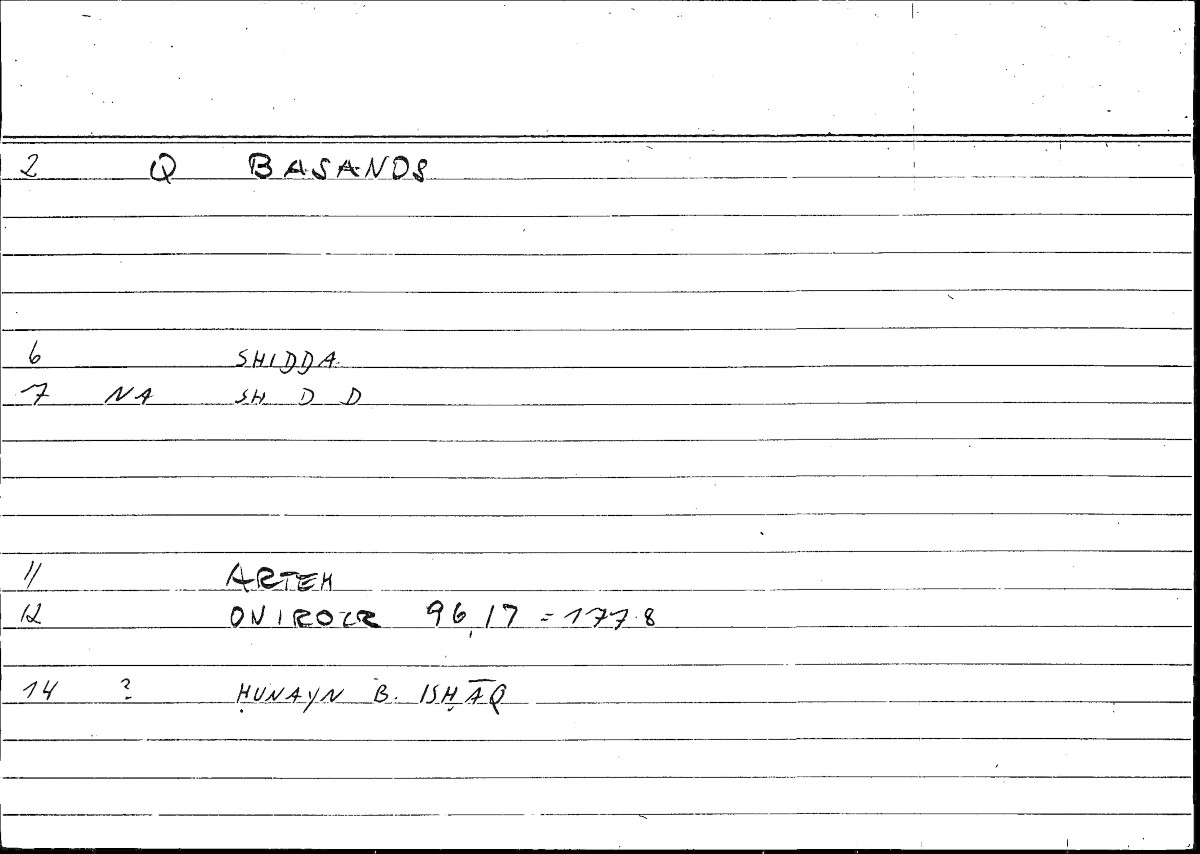 2 Q BASANOS
6 SHIDDA
7 NA SH D D
11 ARTEM
12 ONIROCR 96,17 = 177.8
14 ? ḤUNAYN B. ISḤĀQ